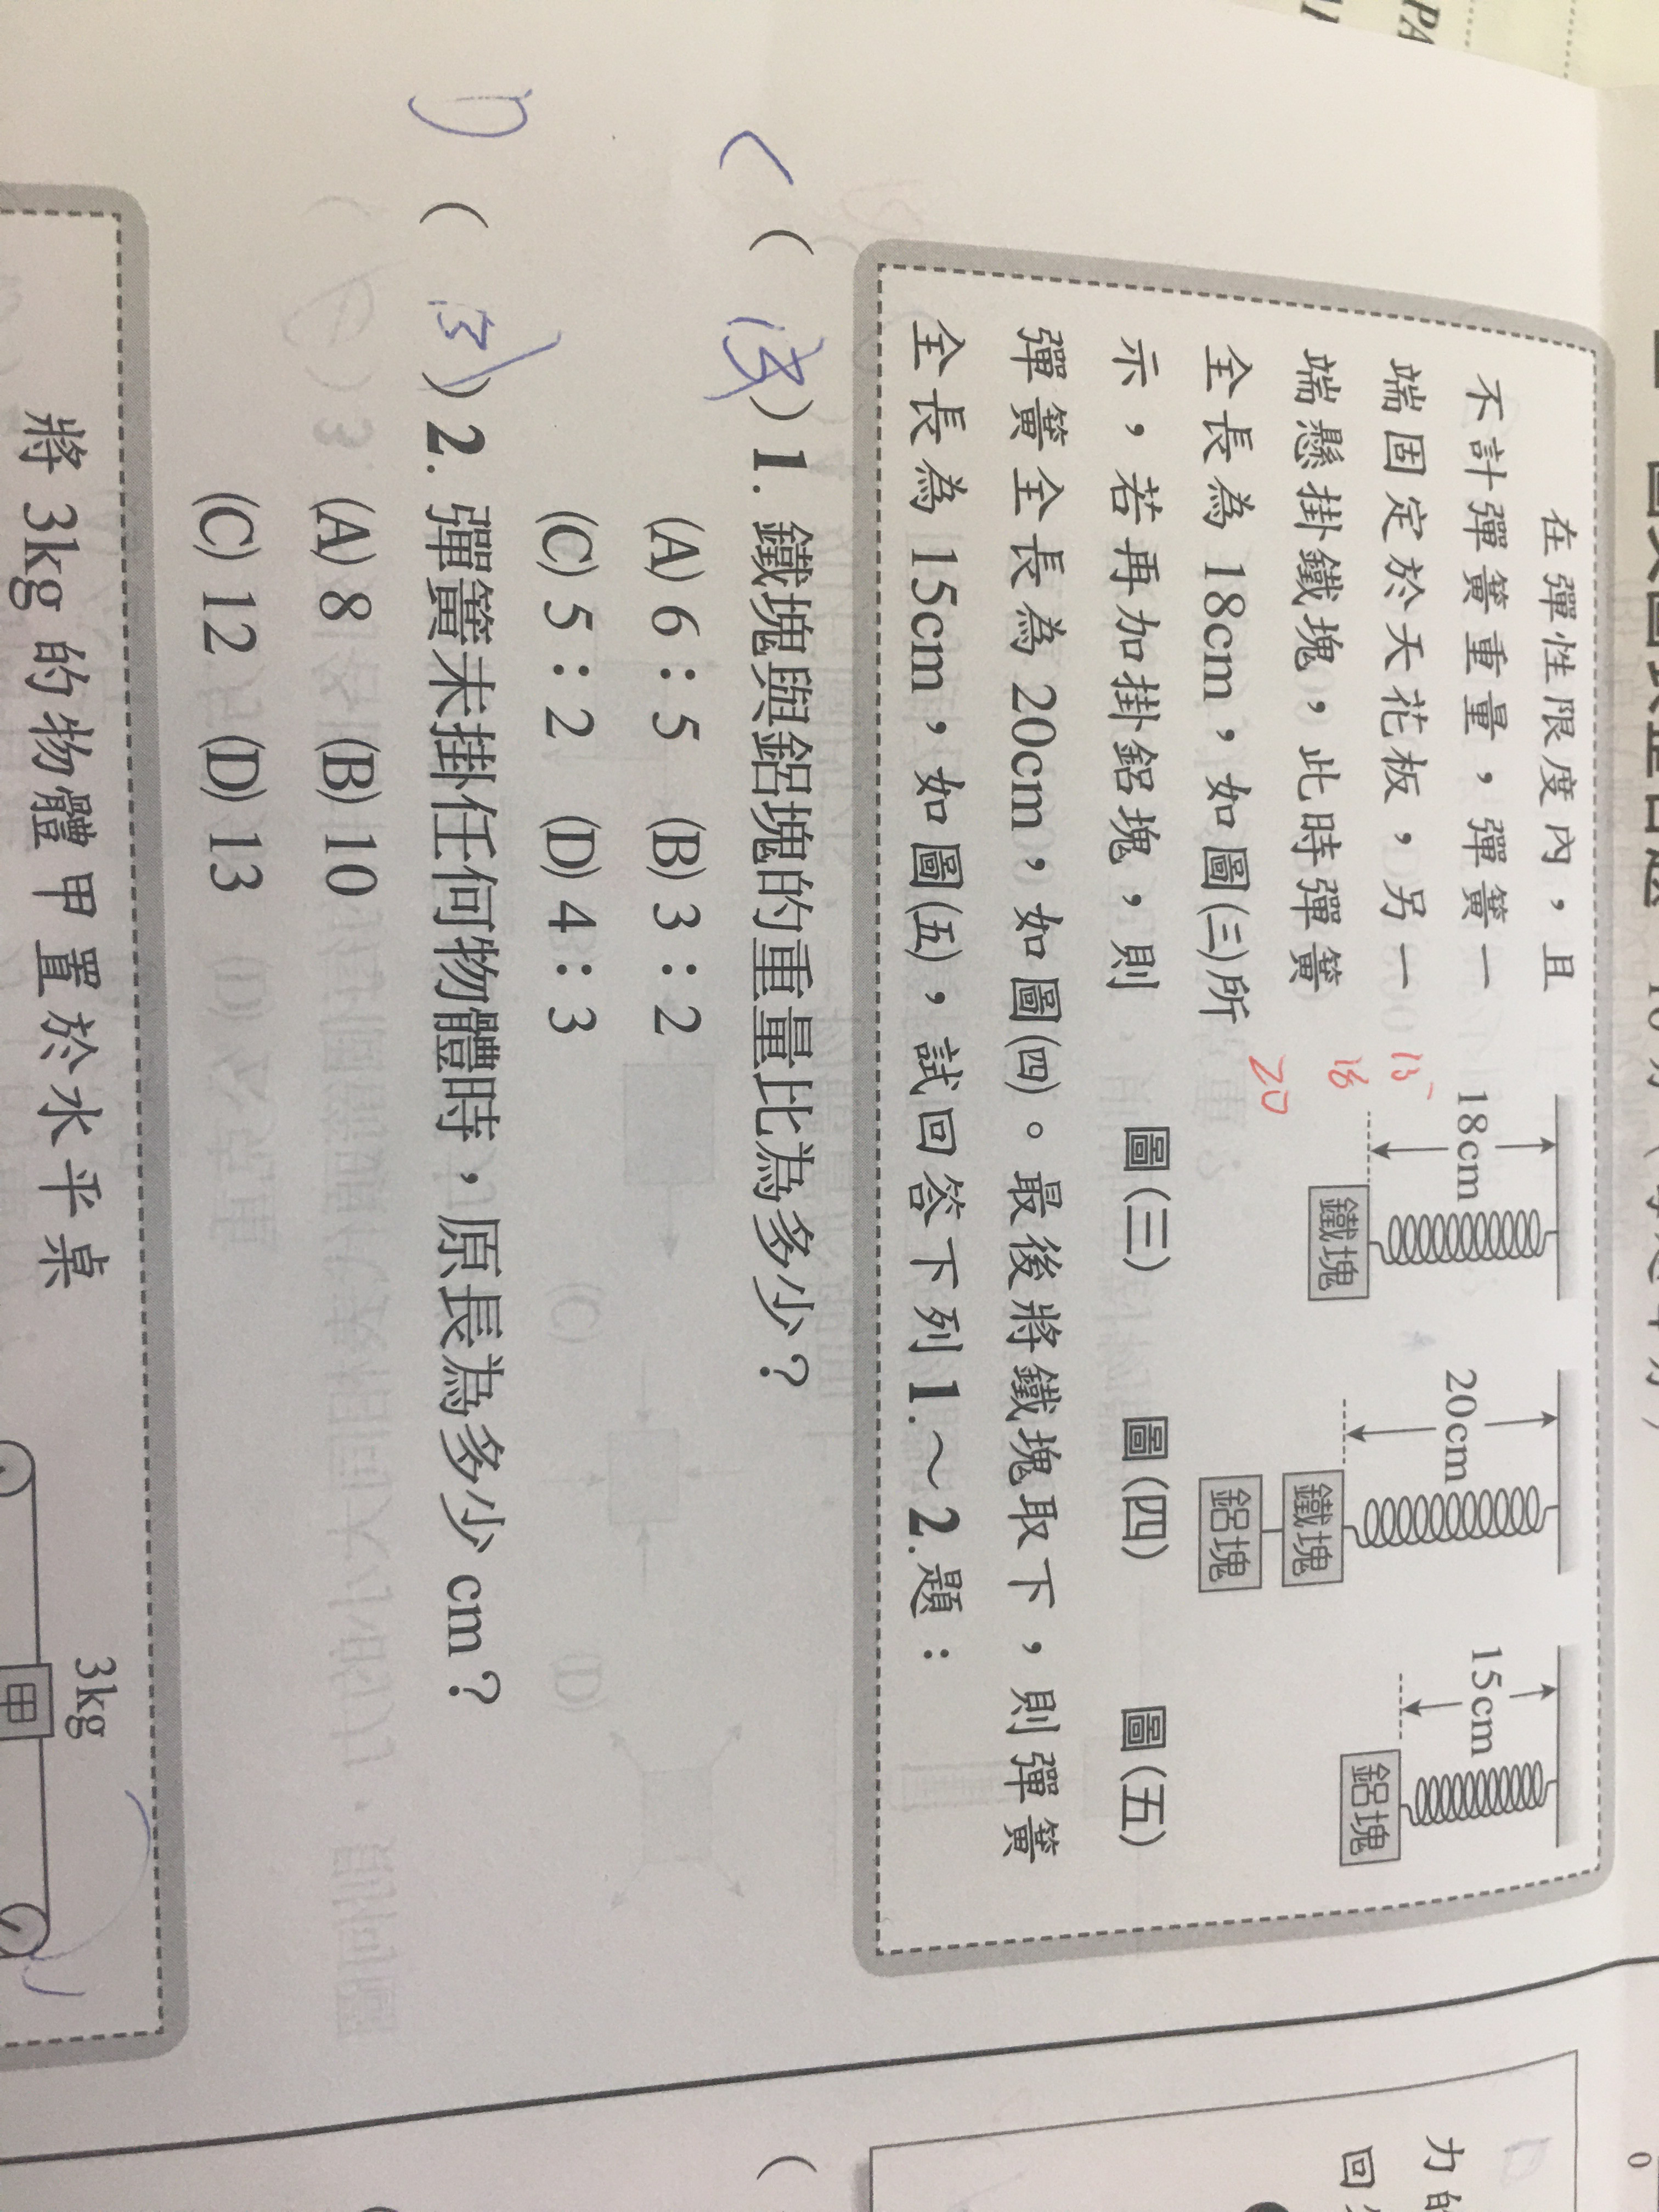 在彈性限度內，且
不計彈簧重量，彈簧一
端固定於天花板，另一
端懸掛鐵塊，此時彈簧
全長為 18cm，如圖(三)所
示，若再加掛鋁塊，則
彈簧全長為 20cm，如圖(四)。最後將鐵塊取下，則彈簧
全長為 15cm，如圖(五)，試回答下列 1.～2.題：
18cm
鐵塊
圖(三)
20cm
鐵塊
鋁塊
圖(四)
15cm
鋁塊
圖(五)
15
18
20
( )1. 鐵塊與鋁塊的重量比為多少？
(A) 6：5 (B) 3：2
(C) 5：2 (D) 4：3
( )2. 彈簧未掛任何物體時，原長為多少 cm？
(A) 8 (B) 10
(C) 12 (D) 13
將 3kg 的物體甲置於水平桌
3kg
甲
PA
力的
0